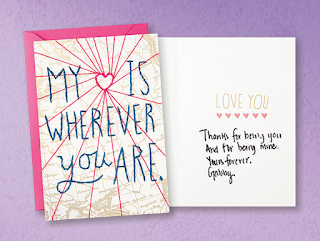 MY IS
WHEREVER
you ARE.
LOVE YOU
Thanks for being you
And for being mine.
Yours forever,
Gabby.